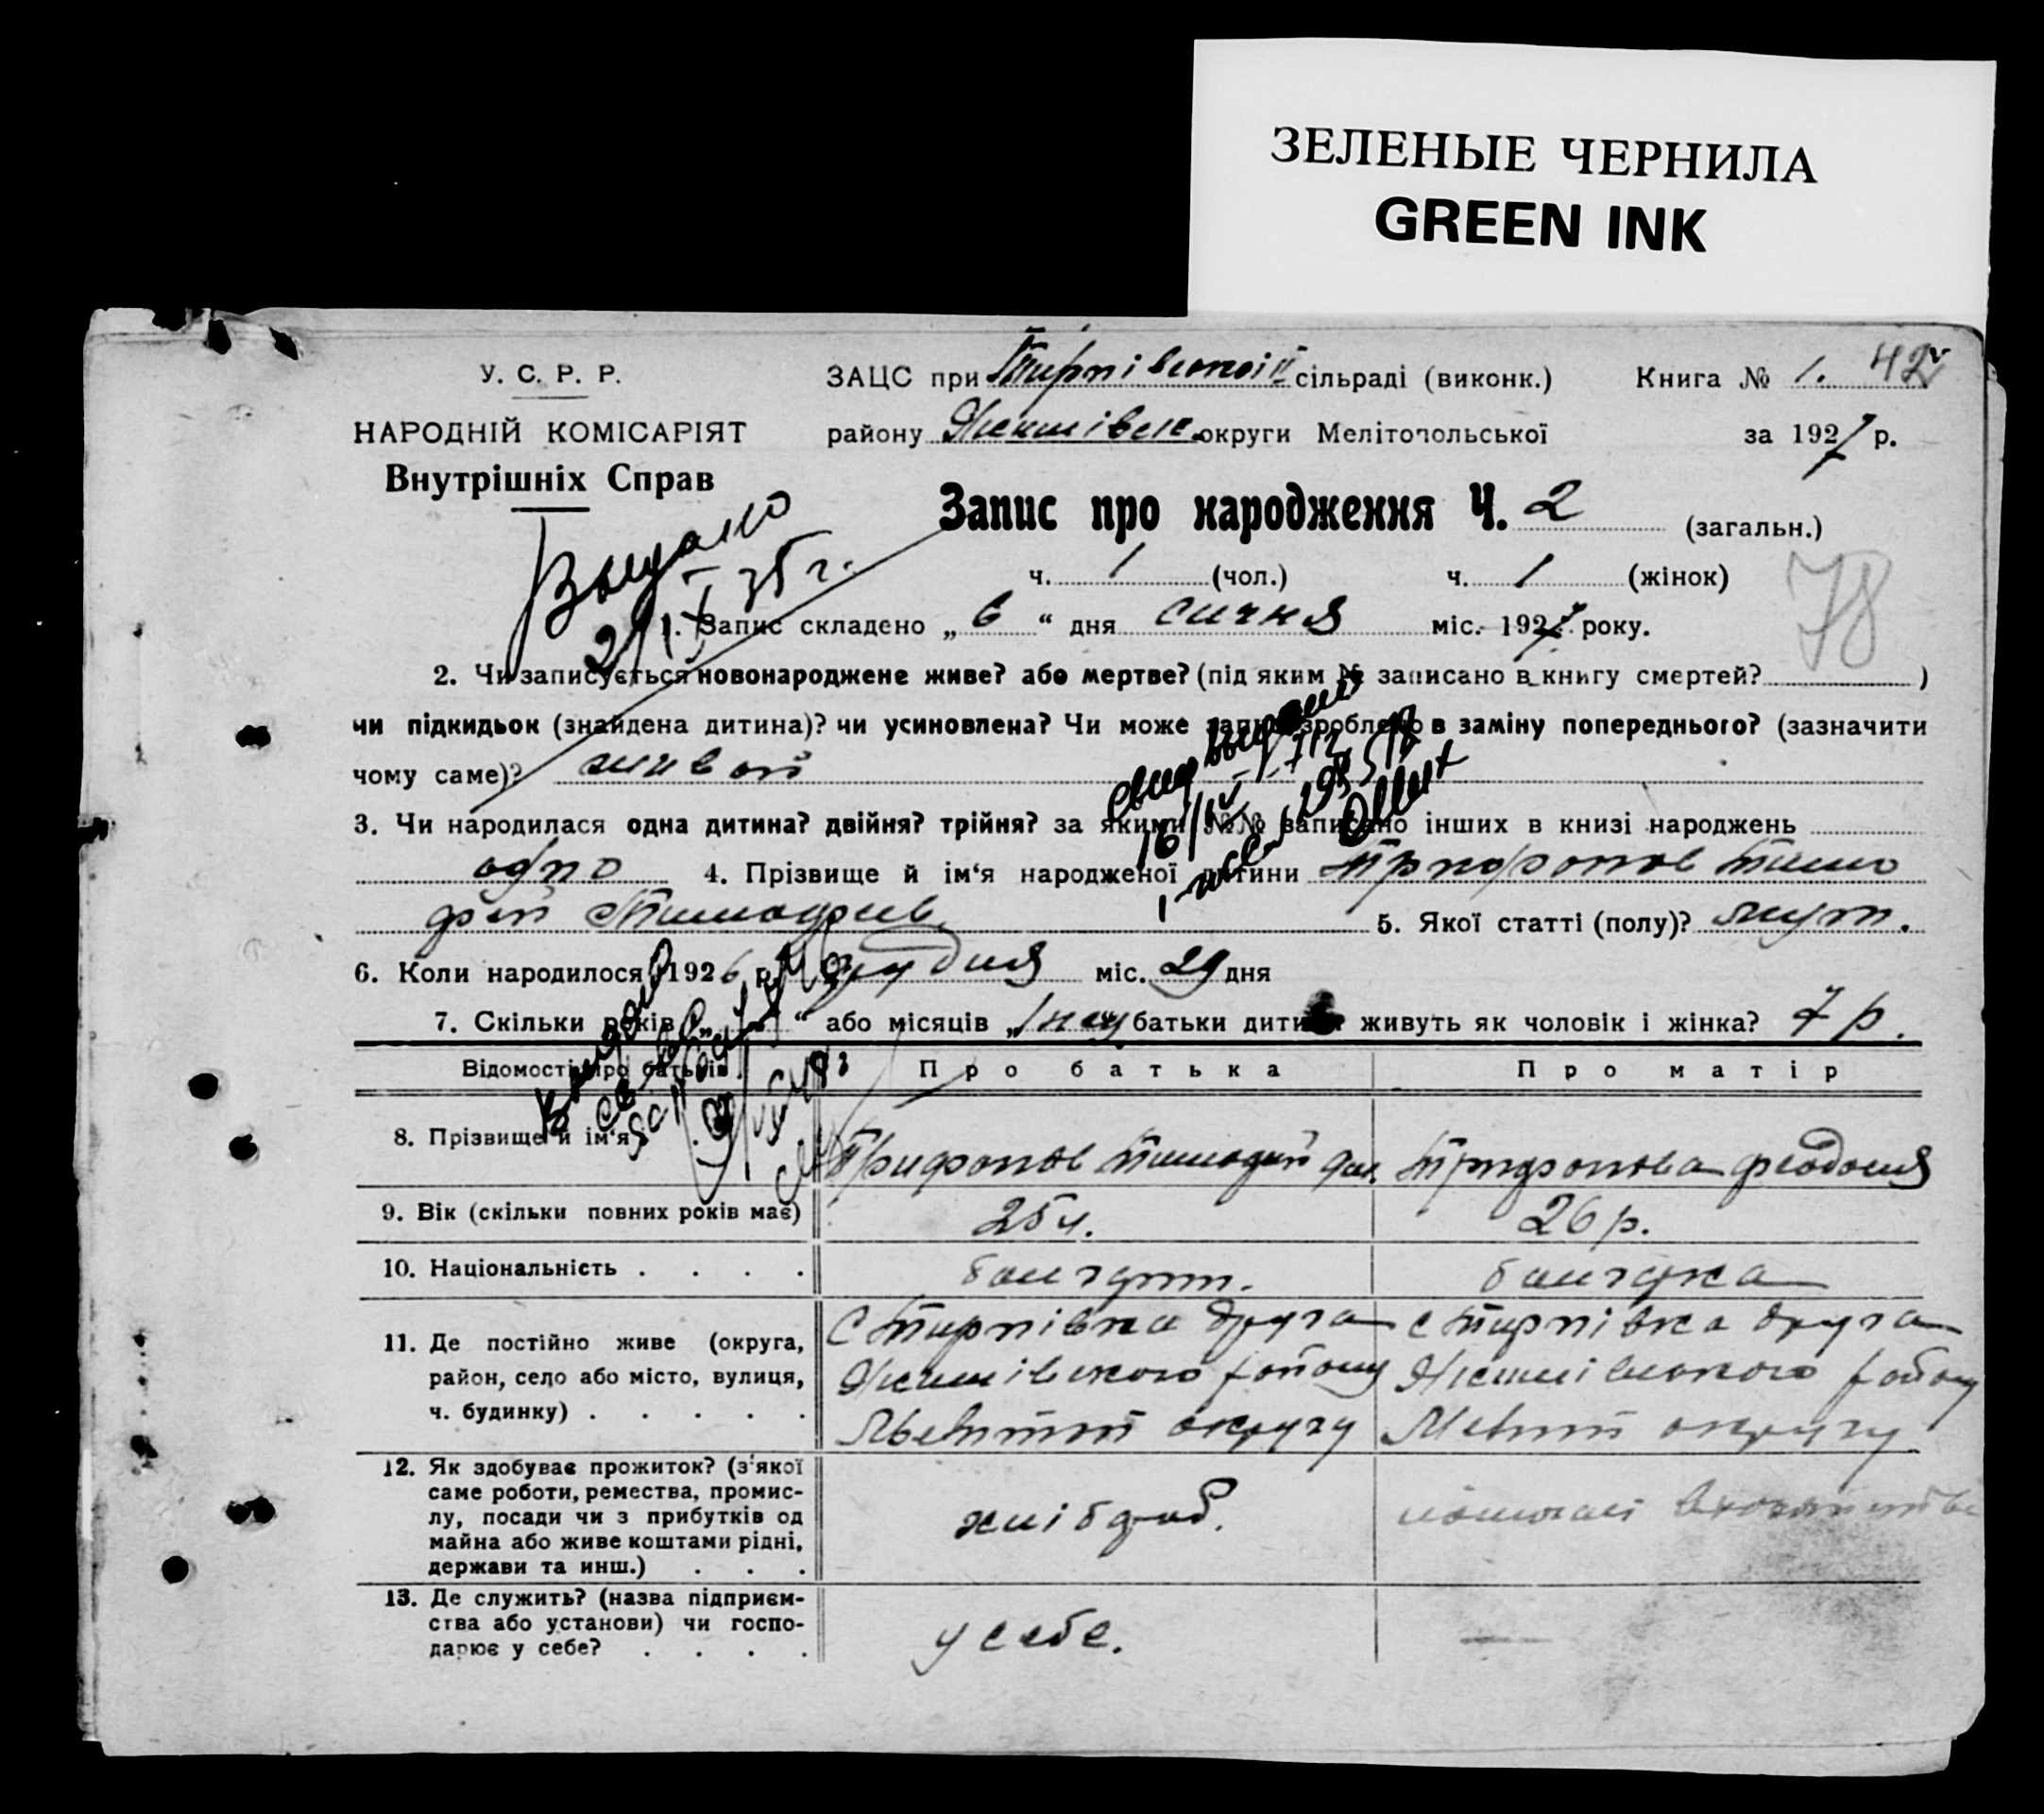 ЗЕЛЕНЫЕ ЧЕРНИЛА
GREEN INK
У. С. Р. Р.
НАРОДНІЙ КОМІСАРІЯТ
Внутрішніх Справ
ЗАЦС при сільраді (виконк.) Книга № 1. 42
району округи Мелітопольської за 1927 р.
Запис про народження Ч. 2 (загальн.)
ч. 1 (чол.) ч. 1 (жінок)
78
Выдано
35 г.
1. Запис складено „ 6 “ дня січня міс. 1927 року.
2. Чи записується новонароджене живе? або мертве? (під яким № записано в книгу смертей? )
чи підкидьок (знайдена дитина)? чи усиновлена? Чи може запис зроблено в заміну попереднього? (зазначити
чому саме)? живой
3. Чи народилася одна дитина? двійня? трійня? за якими №№ записано інших в книзі народжень
одно 4. Прізвище й ім‘я народженої дитини Трифонов Тимо
фей Тимофеев 5. Якої статті (полу)? муж.
6. Коли народилося 1926 р. грудня міс. 29 дня
7. Скільки років „ “ або місяців „ батьки дитини живуть як чоловік і жінка? 7 р.
Відомості про батьків Про батька Про матір
8. Прізвище й ім‘я Трифонов Тимофей Трифонова Феодосия
9. Вік (скільки повних років має) 25 26 р.
10. Національність . . . . болгарин. болгарка
11. Де постійно живе (округа,
район, село або місто, вулиця,
ч. будинку) . . . . .
с Гирпівка друга
Якимівського району
округу
с Гирпівка друга
Якимівського району
округу
12. Як здобуває прожиток? (з‘якої
саме роботи, ремества, промис-
лу, посади чи з прибутків од
майна або живе коштами рідні,
держави та инш.) . . .
хлібороб.
13. Де служить? (назва підприєм-
ства або установи) чи госпо-
дарює у себе? . . . .
у себе. —